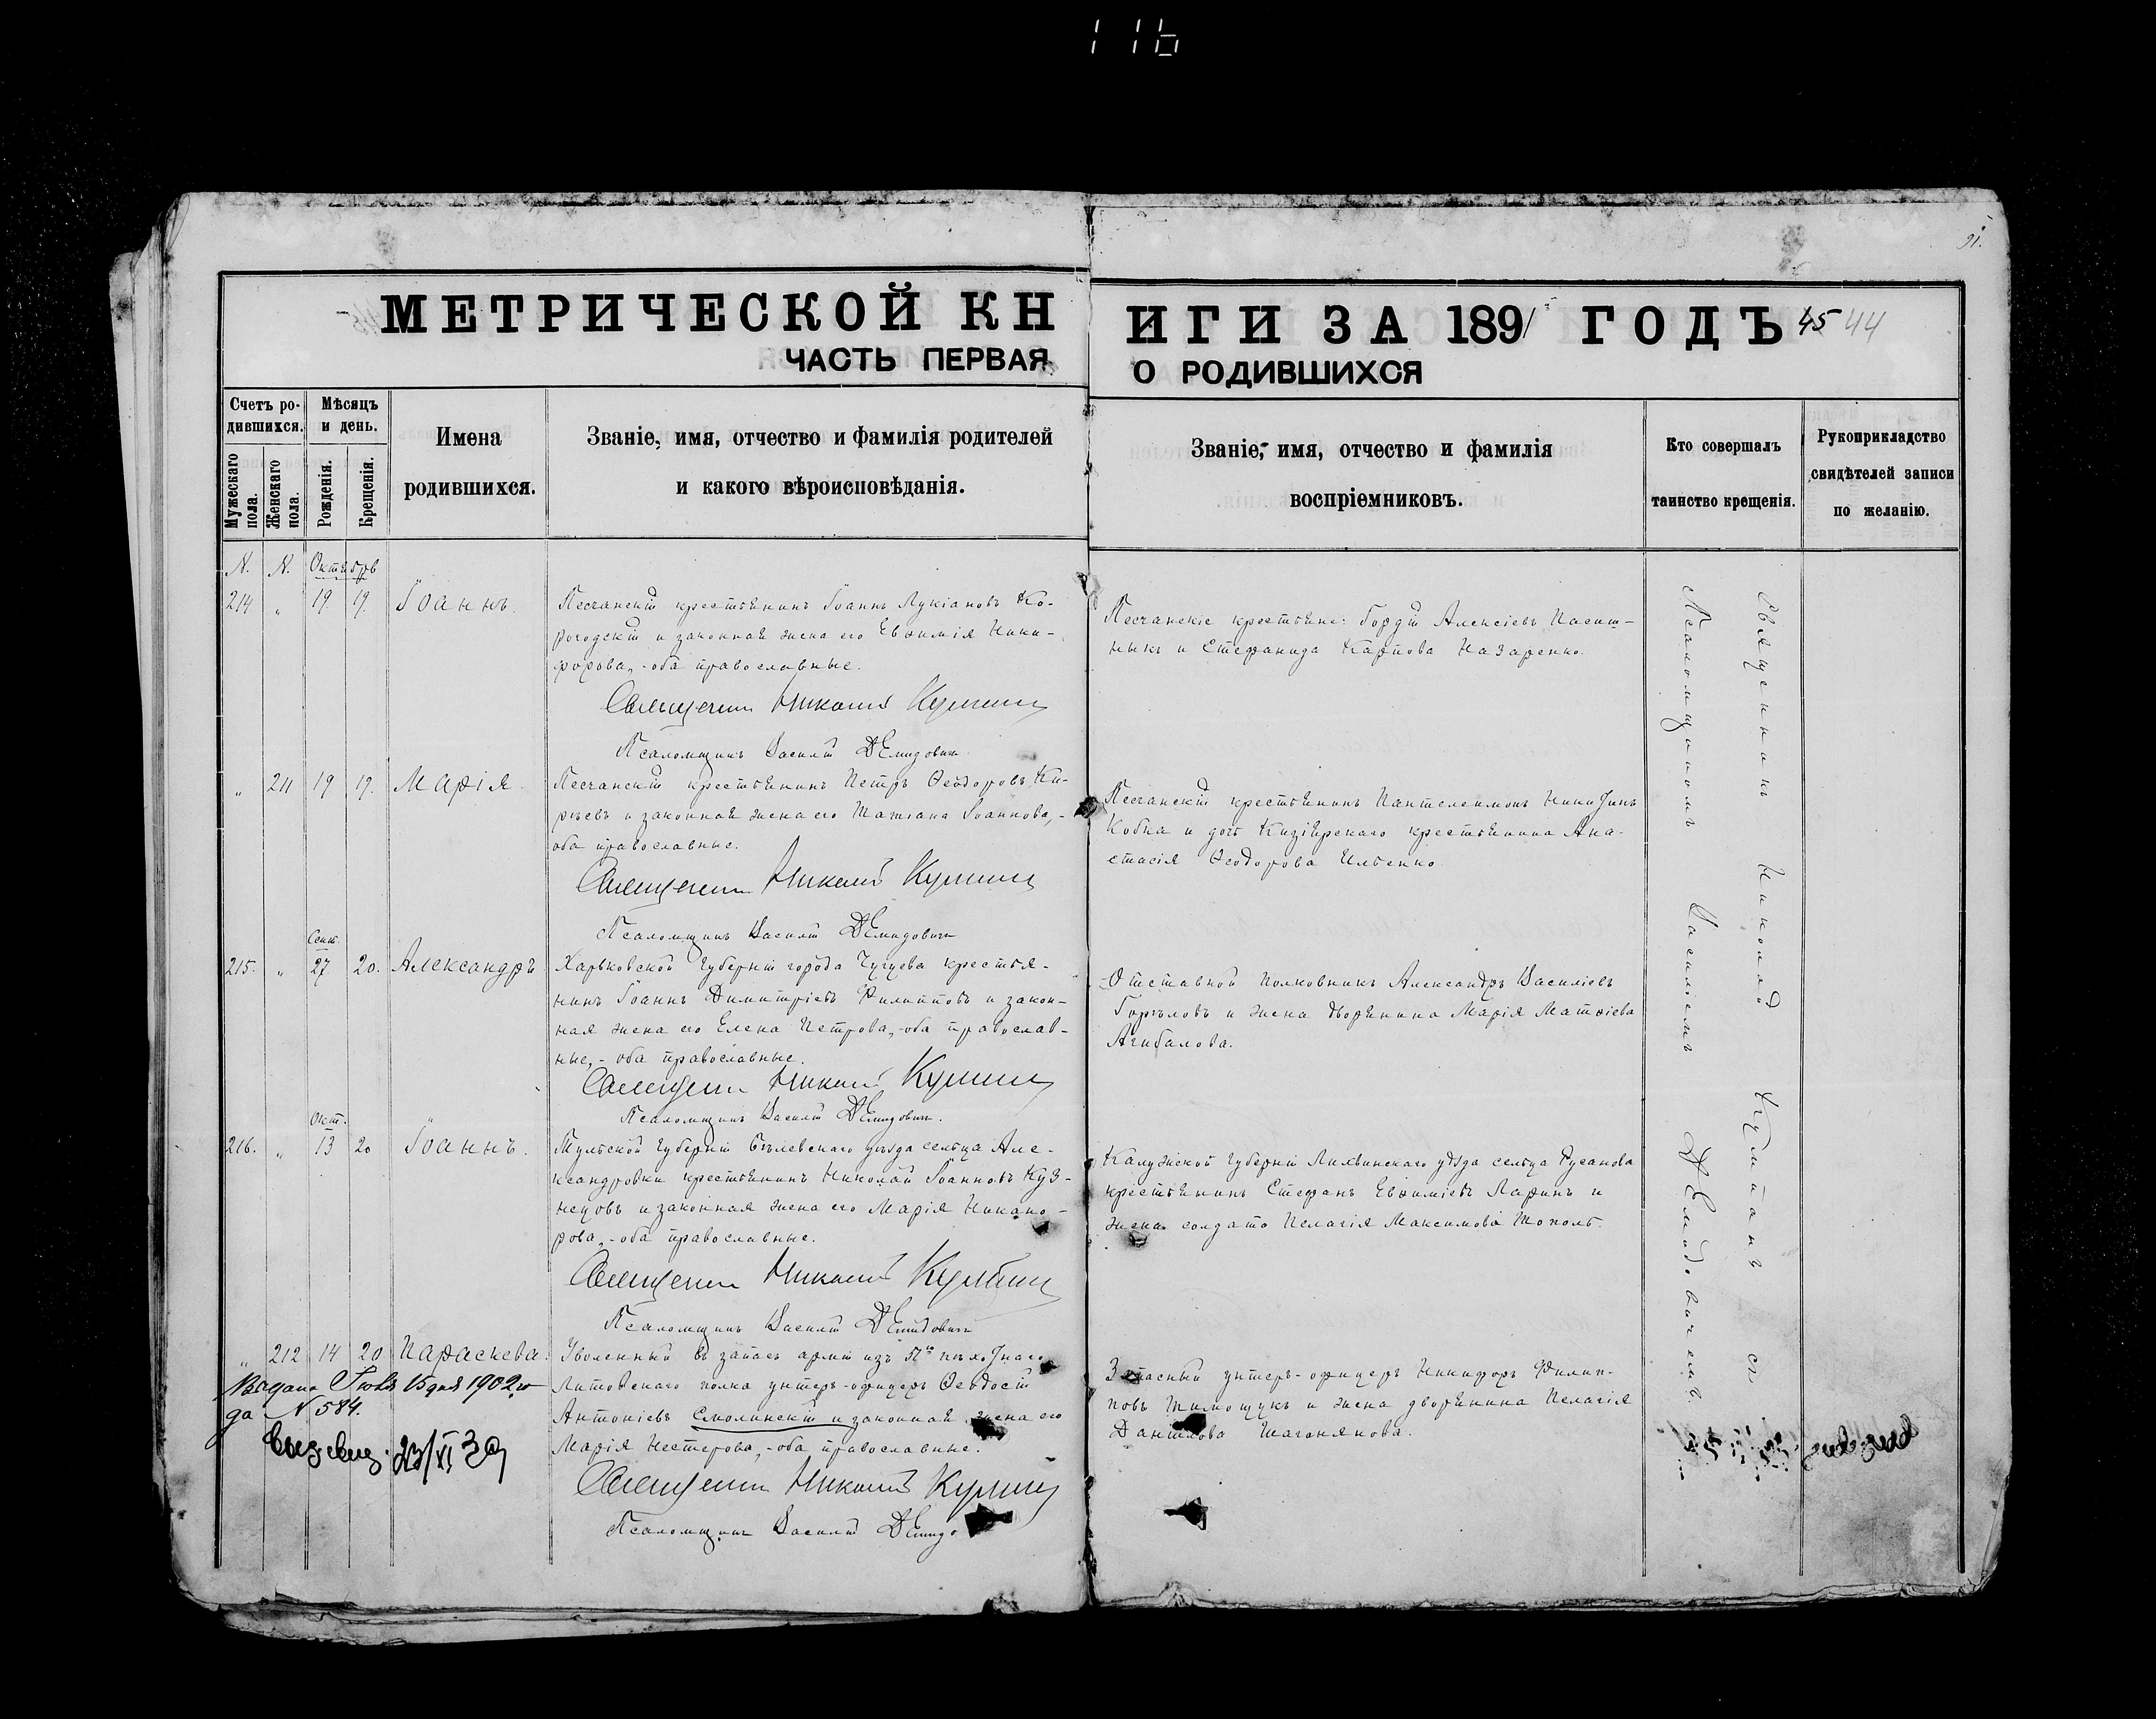 116
91.
МЕТРИЧЕСКОЙ КНИГИ ЗА 1891 ГОДЪ 45 44
ЧАСТЬ ПЕРВАЯ О РОДИВШИХСЯ
Счетъ ро-
дившихся.
Мужескаго пола.
Женскаго пола.
Мѣсяцъ
и день.
Рожденія.
Крещенія.
Имена
родившихся.
Званіе, имя, отчество и фамилія родителей
и какого вѣроисповѣданія.
Званіе, имя, отчество и фамилія
воспріемниковъ.
Кто совершалъ
таинство крещенія.
Рукоприкладство
свидѣтелей записи
по желанію.
N. N. Октябрь
214 „ 19. 19. Іоаннъ.
Песчанскій крестьянинъ Іоаннъ Лукіановъ Ко-
рогодскій и законная жена его Евѳимія Ники-
форова,- оба православные.
Священникъ Николай
Псаломщикъ Василій Демидовичъ
Песчанскіе крестьяне: Гордій Алексіевъ Пасит-
ныкъ и Стефанида Карпова Назаренко.
„ 211 19 19. Марія.
Песчанскій крестьянинъ Петръ Ѳеодоровъ Ки-
рѣевъ и законная жена его Татіана Іоаннова,-
оба православные.
Священникъ Николай
Псаломщикъ Василій Демидовичъ
Песчанскій крестьянинъ Пантелеимонъ Никитинъ
Кобка и дочь крестьянина Ана-
стасія Ѳеодорова Ильенко
Сент.
215. „ 27 20. Александръ
Харьковской губерніи города Чугуева крестья-
нинъ Іоаннъ Димитріевъ Филипповъ и закон-
ная жена его Елена Петрова,- оба православ-
ные,- оба православные.
Священникъ Николай
Псаломщикъ Василій Демидовичъ.
Отставной полковникъ Александръ Василіевъ
Горѣловъ и жена дворянина Марія Матѳіева
Агибалова.
Окт.
216. „ 13 20 Іоаннъ.
Тульской губерніи Бѣлевскаго уѣзда сельца Але-
ксандровки крестьянинъ Николай Іоанновъ Куз-
нецовъ и законная жена его Марія Никано-
рова,- оба православные.
Священникъ Николай
Псаломщикъ Василій Демидовичъ
Калужской губерніи Лихвинскаго уѣзда сельца Русанова
крестьянинъ Стефанъ Евѳиміевъ Ларинъ и
жена солдата Пелагія Максимова Тополь.
„ 212 14 20 Параскева.
Уволенный въ запасъ арміи изъ 51го пѣхотнаго
Литовскаго полка унтеръ-офицеръ Ѳеодосій
Антоніевъ Смолинскій и законная жена его
Марія Нестерова,- оба православные.
Священникъ Николай
Псаломщикъ Василій Демидо
Запасный унтеръ-офицеръ Никифоръ Филип-
повъ Тимощукъ и жена дворянина Пелагія
Даніилова Шагонянова.
Выдана Іюля 15 дня 1902 го
да N 584.
23/XI 39
Священникъ Николай съ
Псаломщикомъ Василіемъ Демидовичемъ.